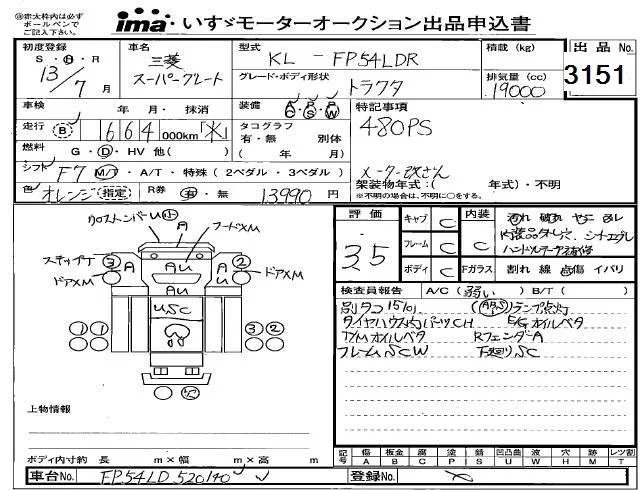 ㊟赤太枠内は必ず
ボールペンで
ご記入下さい。
ima いすゞモーターオークション出品申込書
初度登録
S・H・R
13/7 月
車名
三菱
スーパーグレート
型式
KL - FP54LDR
グレード・ボディ形状
トラクタ
積載 (kg)
排気量 (cc)
19000
出品 No.
3151
車検
年 月・抹消
装備
A C P S P W
特記事項
480PS
走行 B 1664 000km
タコグラフ
有・無 別体
( 年 月)
燃料 G・D・HV 他( )
シフト F7 M/T・A/T・特殊 (2ペダル・3ペダル)
架装物年式:( 年式)・不明
※不明の場合は、不明に○をする。
色 オレンジ 指定
R券 有・無 13990 円
フロントバンパーU小
A
フードXM
ステップT
ドアXM
3 A Au A 2
ドアXM
Au
USC
1 1
3 2
上物情報
ボディ内寸約 長 m×幅 m×高 m
評価
3.5
キャブ C
フレーム C
ボディ C
内装
C
Fガラス
割れ 線 点傷 イバリ
検査員報告 A/C (弱い) B/T ( )
別タコ15/01 (ABS)ランプ点灯
タイヤハウス内パーツCH E/Gオイルベタ
T/Mオイルベタ RフェンダーA
フレームSCW 下廻りSC
記号 傷A 板金B 腐C 塗P 錆S 凹凸曲U 波W 穴H 跡M レツ割T
車台No. FP54LD 520140
登録No.